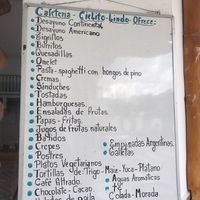 Cafetería - Cielito-Lindo Ofrece:
Desayuno Continental
Desayuno Americano
Tigrillos
Burritos
Quesadillas
Omelet
Pasta-spaghetti con hongos de pino
Cremas
Sánduches
Tostadas
Hamburguesas
Ensaladas de Frutas.
Papas - Fritas.
Jugos de frutas naturales
Batidos
Crepes
Postres
Platos Vegetarianos
Tortillas de: Trigo-Maíz-Yuca-Plátano
Café filtrado
Chocolate - Cacao.
Helados de paila
Empanadas Argentinas.
Galletas
Aguas Aromáticas
Té
Colada-Morada